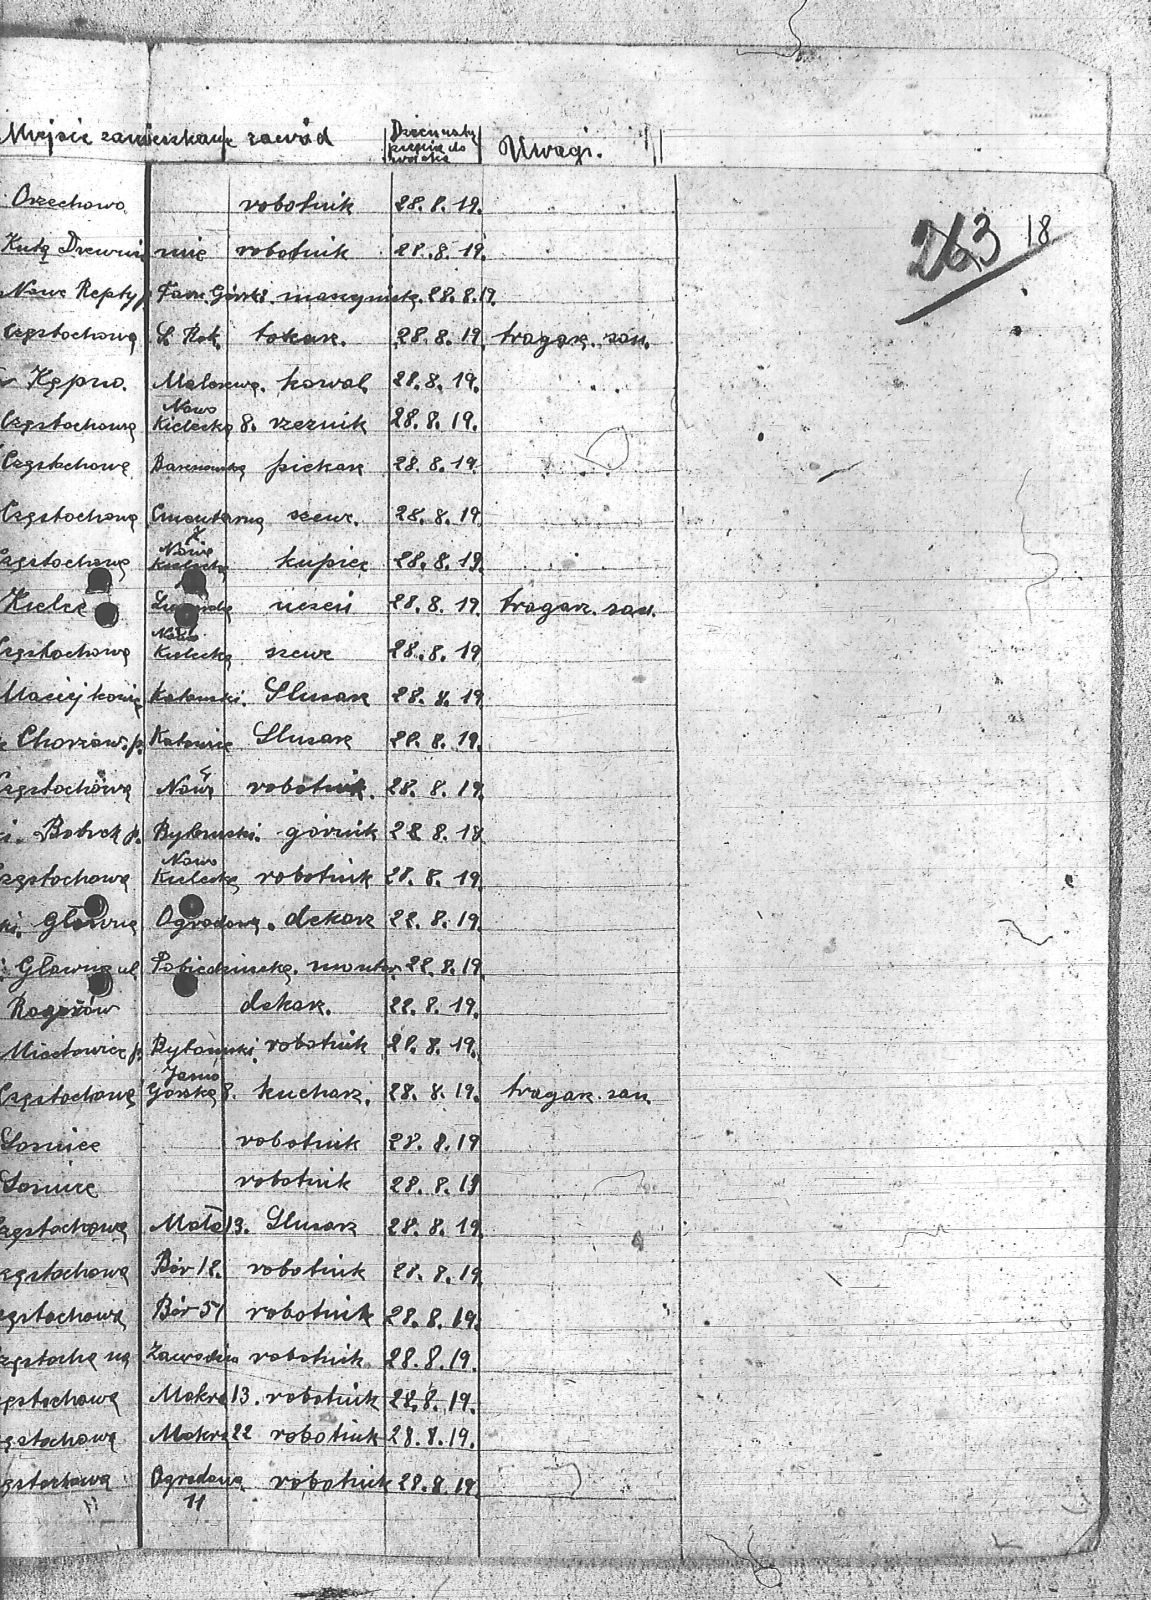 Miejsce zamieszkane zawód Dzień wstąpienia do wojska Uwagi.
263 18
Orzechowo robotnik 28.8.19.
robotnik 28.8.19.
Nowe Repty p. Tarn. Górski maszynistą 28.8.19.
Częstochowa Ś. Rok. tokarz. 28.8.19. tragarz. san.
Kępno. kowal 28.8.19.
Częstochowa Nowo Kielecka 8. rzeznik 28.8.19.
Częstochowa piekarz 28.8.19.
Częstochowa Cmentarna szewc. 28.8.19.
Częstochowa Nowo Kielecka kupiec 28.8.19.
Kielce uczeń 28.8.19. tragarz. san.
Częstochowa Nowo Kielecka szewc 28.8.19
Maciejkowice Katowski. Slusarz 28.8.19
Chorzów. p. Katowice Slusarz 28.8.19.
Częstochowa Nowa robotnik. 28.8.19.
Bobrek p. górnik 28.8.19
Częstochowa Nowo Kielecka robotnik 28.8.19.
Główna Ogrodowa. dekarz 28.8.19.
Główna ul. Pobiedzińska. monter 28.8.19.
dekarz. 28.8.19.
Miechowice p. Bytomski. robotnik 28.8.19.
Częstochowa Jasno Górska 8. kucharz. 28.8.19. tragarz. san.
Sosnice robotnik 28.8.19
Sosnice robotnik 28.8.19
Częstochowa Mała 13. Slusarz 28.8.19.
Częstochowa Bór 12. robotnik 28.8.19.
Częstochowa Bór 51 robotnik 28.8.19.
Zawodzie robotnik 28.8.19.
Częstochowa Mokra 13. robotnik 28.8.19.
Częstochowa Mokra 22 robotnik 28.8.19.
Częstochowa Ogrodowa 11 robotnik 28.8.19.